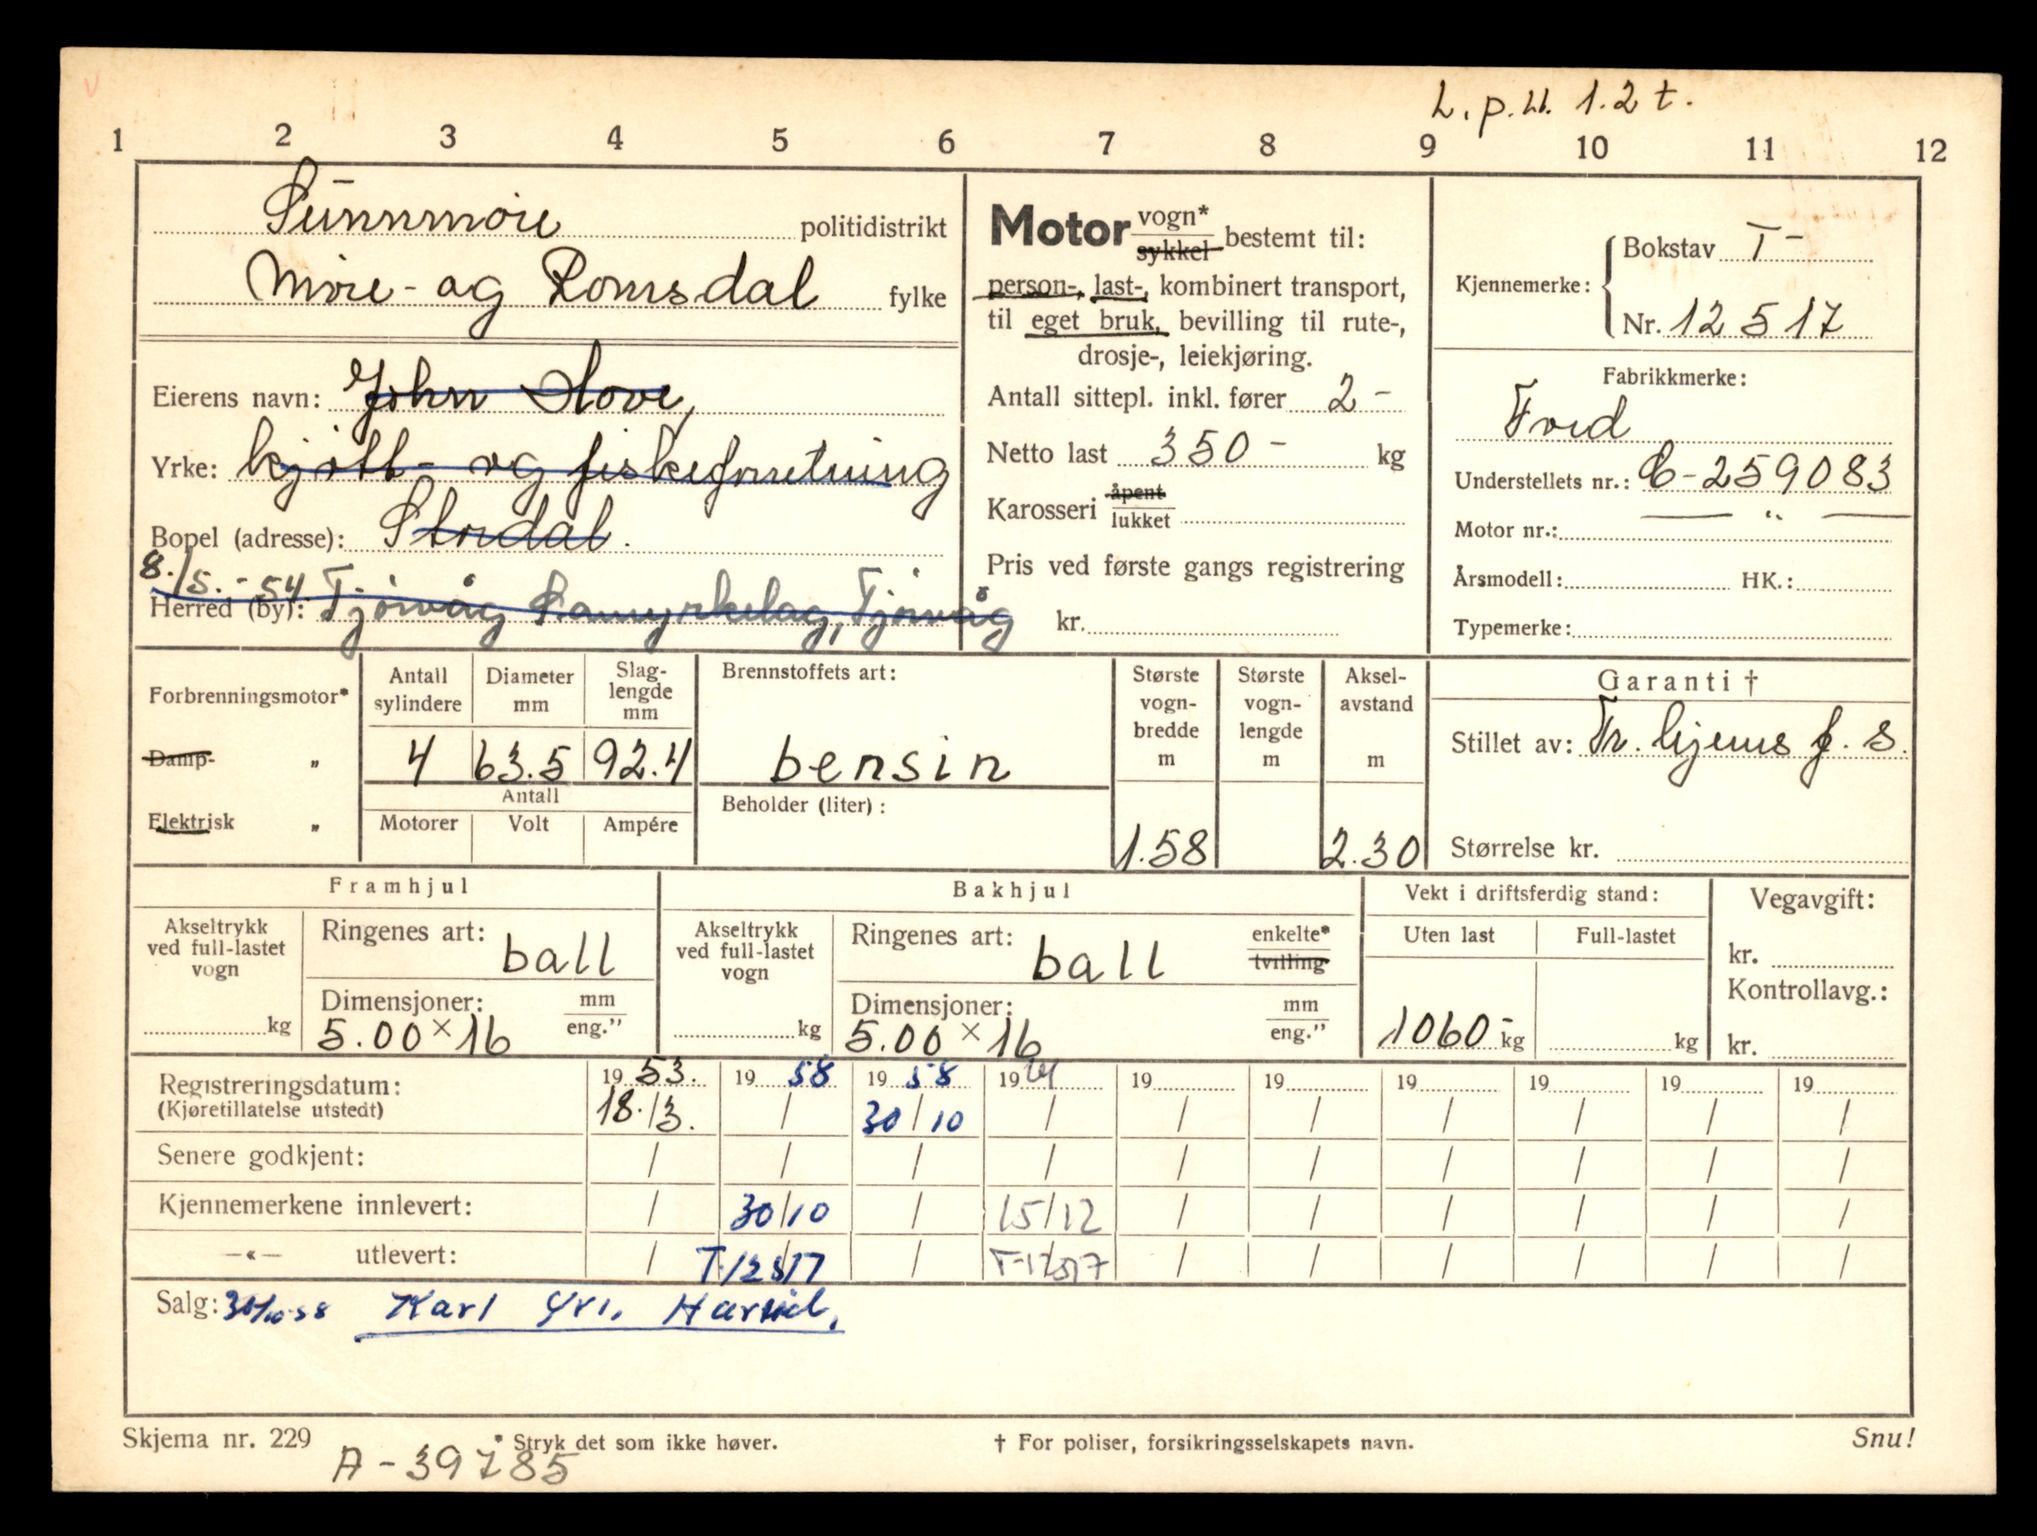 L. p. Lb. 1.2 t.
1 2 3 4 5 6 7 8 9 10 11 12
Sunnmøre politidistrikt
Møre- og Romsdal fylke
Eierens navn: John Hove,
Yrke: kjøtt- og fiskeforretning
Bopel (adresse): Stordal.
8./5. - 54 Tjørvåg Tjørvåg
Herred (by):
Motor vogn* sykkel bestemt til:
person-, last-, kombinert transport,
til eget bruk, bevilling til rute-,
drosje-, leiekjøring.
Antall sittepl. inkl. fører 2 -
Netto last 350 - kg
Karosseri åpent lukket
Pris ved første gangs registrering
kr.
Kjennemerke: Bokstav T -
Nr. 12517
Fabrikkmerke:
Ford
Understellets nr.: C-259083
Motor nr.: — " —
Årsmodell: HK.:
Typemerke:
Forbrenningsmotor*
Damp- „
Elektrisk „
Antall sylindere
Diameter mm
Slag-lengde mm
4 63.5 92.4
Antall
Motorer Volt Ampére
Brennstoffets art:
bensin
Beholder (liter):
Største vogn-bredde m
1.58
Største vogn-lengde m
Aksel-avstand m
2.30
Garanti †
Stillet av: f. s.
Størrelse kr.
Framhjul
Akseltrykk ved full-lastet vogn
kg
Ringenes art: ball
Dimensjoner: mm eng."
5.00 × 16
Bakhjul
Akseltrykk ved full-lastet vogn
kg
Ringenes art: ball enkelte* tvilling
Dimensjoner: mm eng."
5.00 × 16
Vekt i driftsferdig stand:
Uten last Full-lastet
1060 - kg kg
Vegavgift:
kr.
Kontrollavg.:
kr.
Registreringsdatum: 19 53. 19 58 19 58 19 64 19 19 19 19 19 19
(Kjøretillatelse utstedt) 18./3. / 30/10 / / / / / / /
Senere godkjent: / / / / / / / / / /
Kjennemerkene innlevert: / 30/10 / 15/12 / / / / / /
—«— utlevert: / T-12517 / T-12517 / / / / / /
Salg: 30/10-58 Karl Yri, Hareid.
Skjema nr. 229
* Stryk det som ikke høver.
† For poliser, forsikringsselskapets navn.
Snu!
A - 39785